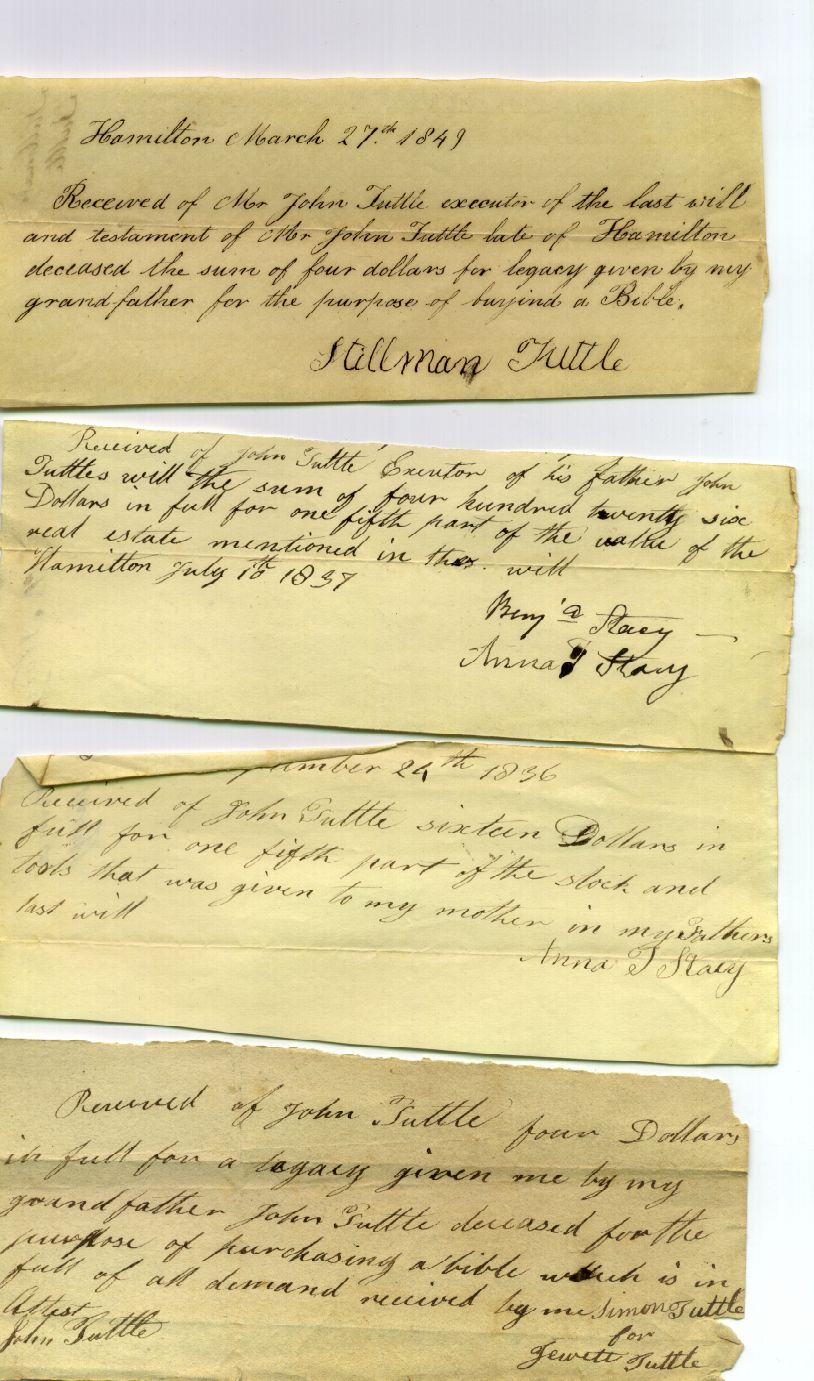 Hamilton March 27.th 1849
Received of Mr John Tuttle executor of the last will
and testament of Mr John Tuttle late of Hamilton
deceased the sum of four dollars for legacy given by my
grandfather for the purpose of buyind a Bible.
Stillman Tuttle
Received of John Tuttle Executor of his father John
Tuttles will the sum of four hundred twenty six
Dollars in full for one fifth part of the value of the
real estate mentioned in the will
Hamilton July 1837
Benj a Stacy
Anna T Stacy
24th 1836
Received of John Tuttle sixteen Dollars in
full for one fifth part of the stock and
tools that was given to my mother in my Fathers
last will
Anna T Stacy
Received of John Tuttle four Dollars
in full for a legacy given me by my
grandfather John Tuttle deceased for the
purpose of purchasing a bible which is in
full of all demand received by me Simon Tuttle
Attest for
John Tuttle Jewett Tuttle